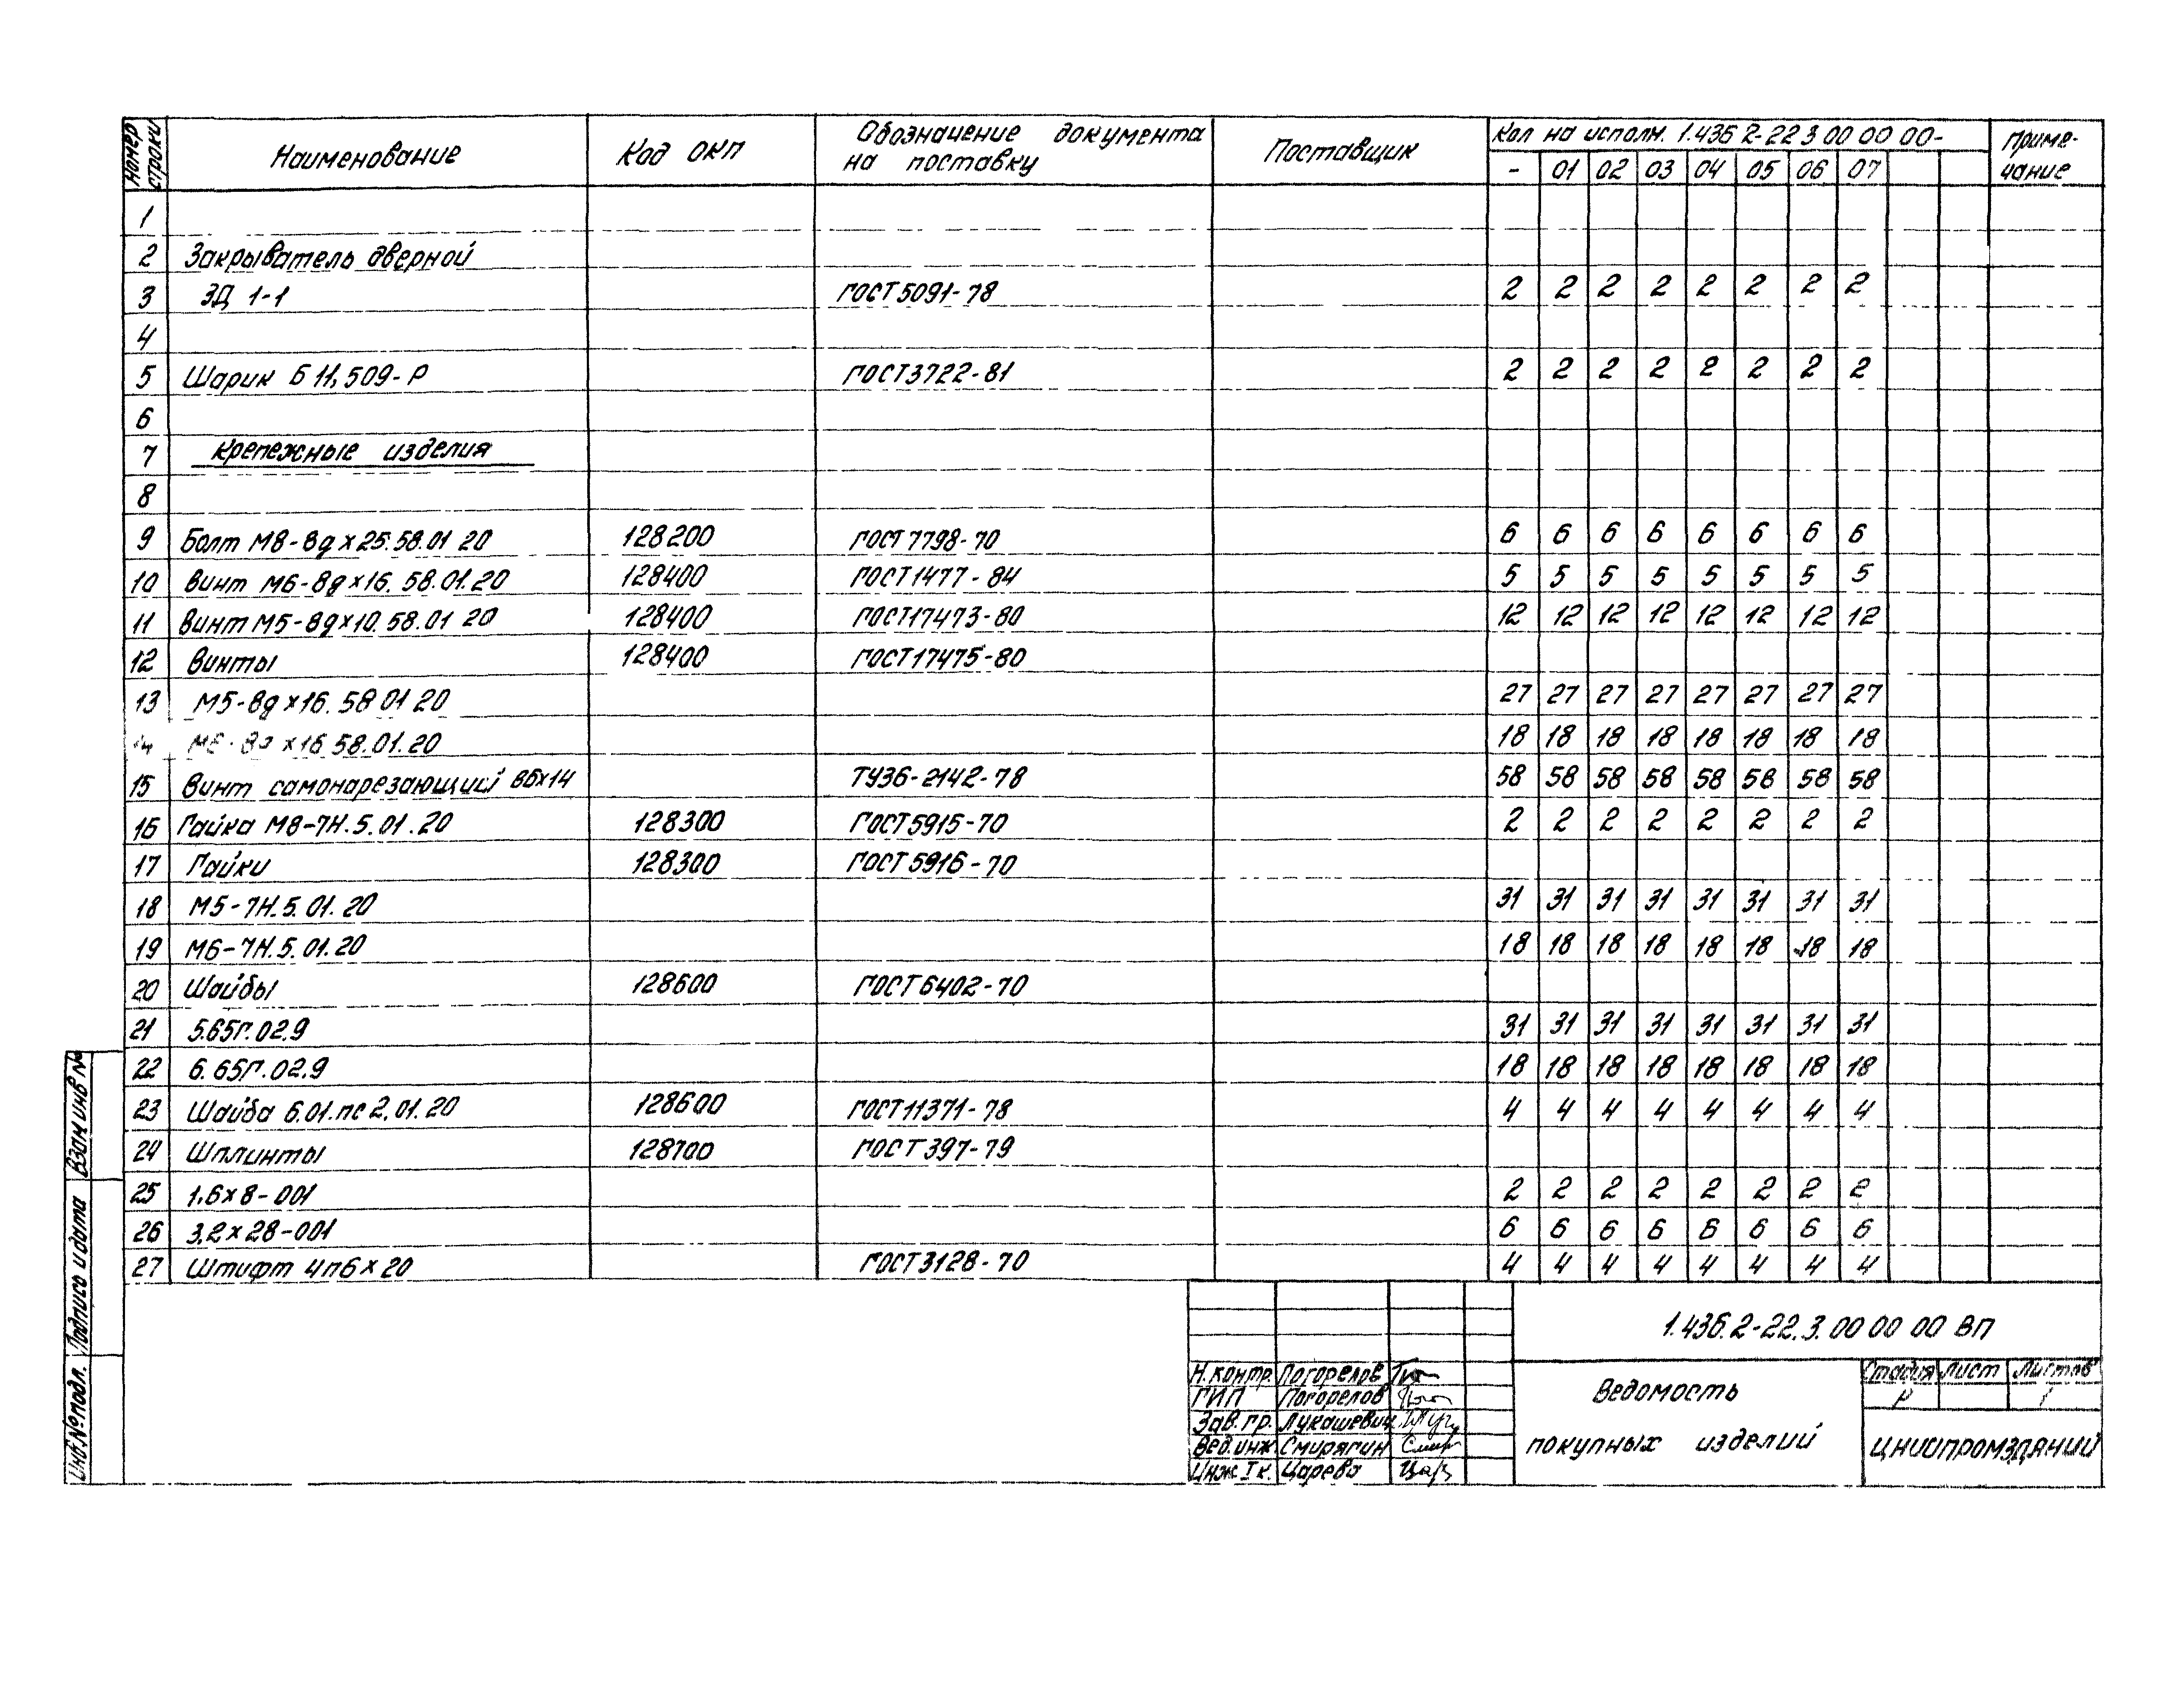 Номер строки Наименование Код ОКП Обозначение документа на поставку Поставщик Кол на исполн. 1.436 2-22 3 00 00 00- Примечание
- 01 02 03 04 05 06 07
1
2 Закрыватель дверной
3 ЗД 1-1 ГОСТ 5091-78 2 2 2 2 2 2 2 2
4
5 Шарик Б 11,509-Р ГОСТ 3722-81 2 2 2 2 2 2 2 2
6
7 Крепежные изделия
8
9 Болт М8-8g×25.58.01 20 128200 ГОСТ 7798-70 6 6 6 6 6 6 6 6
10 Винт М6-8g×16.58.01.20 128400 ГОСТ 1477-84 5 5 5 5 5 5 5 5
11 Винт М5-8g×10.58.01 20 128400 ГОСТ 17473-80 12 12 12 12 12 12 12 12
12 Винты 128400 ГОСТ 17475-80
13 М5-8g×16.58 01 20 27 27 27 27 27 27 27 27
14 М6-8g×16 58.01.20 18 18 18 18 18 18 18 18
15 Винт самонарезающий В6×14 ТУ36-2142-78 58 58 58 58 58 58 58 58
16 Гайка М8-7Н.5.01.20 128300 ГОСТ 5915-70 2 2 2 2 2 2 2 2
17 Гайки 128300 ГОСТ 5916-70
18 М5-7Н.5.01.20 31 31 31 31 31 31 31 31
19 М6-7Н.5.01.20 18 18 18 18 18 18 18 18
20 Шайбы 128600 ГОСТ 6402-70
21 5.65Г.02.9 31 31 31 31 31 31 31 31
22 6.65Г.02.9 18 18 18 18 18 18 18 18
23 Шайба 6.01.пс 2.01.20 128600 ГОСТ 11371-78 4 4 4 4 4 4 4 4
24 Шплинты 128700 ГОСТ 397-79
25 1,6×8-001 2 2 2 2 2 2 2 2
26 3,2×28-001 6 6 6 6 6 6 6 6
27 Штифт 4п6×20 ГОСТ 3128-70 4 4 4 4 4 4 4 4
Взам инв №
Подпись и дата
Инв.№ подл.
1.436.2-22.3.00 00 00 ВП
Н.контр. Погорелов
ГИП Погорелов
Зав.гр. Лукашевич
Вед.инж. Смирягин
Инж I к. Царева
Ведомость
покупных изделий
Стадия Лист Листов
Р 1
ЦНИИПРОМЗДАНИЙ